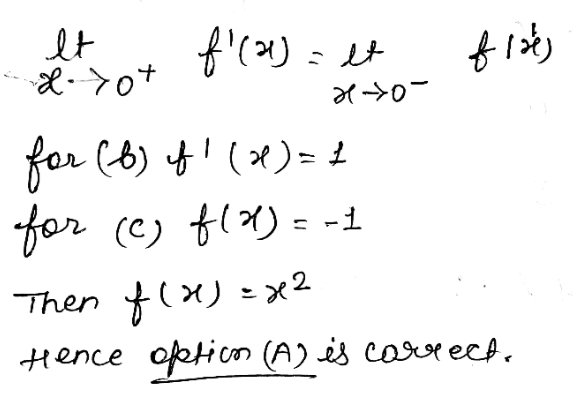 lt x→0+ f'(x) = lt x→0- f'(x)
for (b) f'(x) = 1
for (c) f(x) = -1
Then f(x) = x²
Hence option (A) is correct.